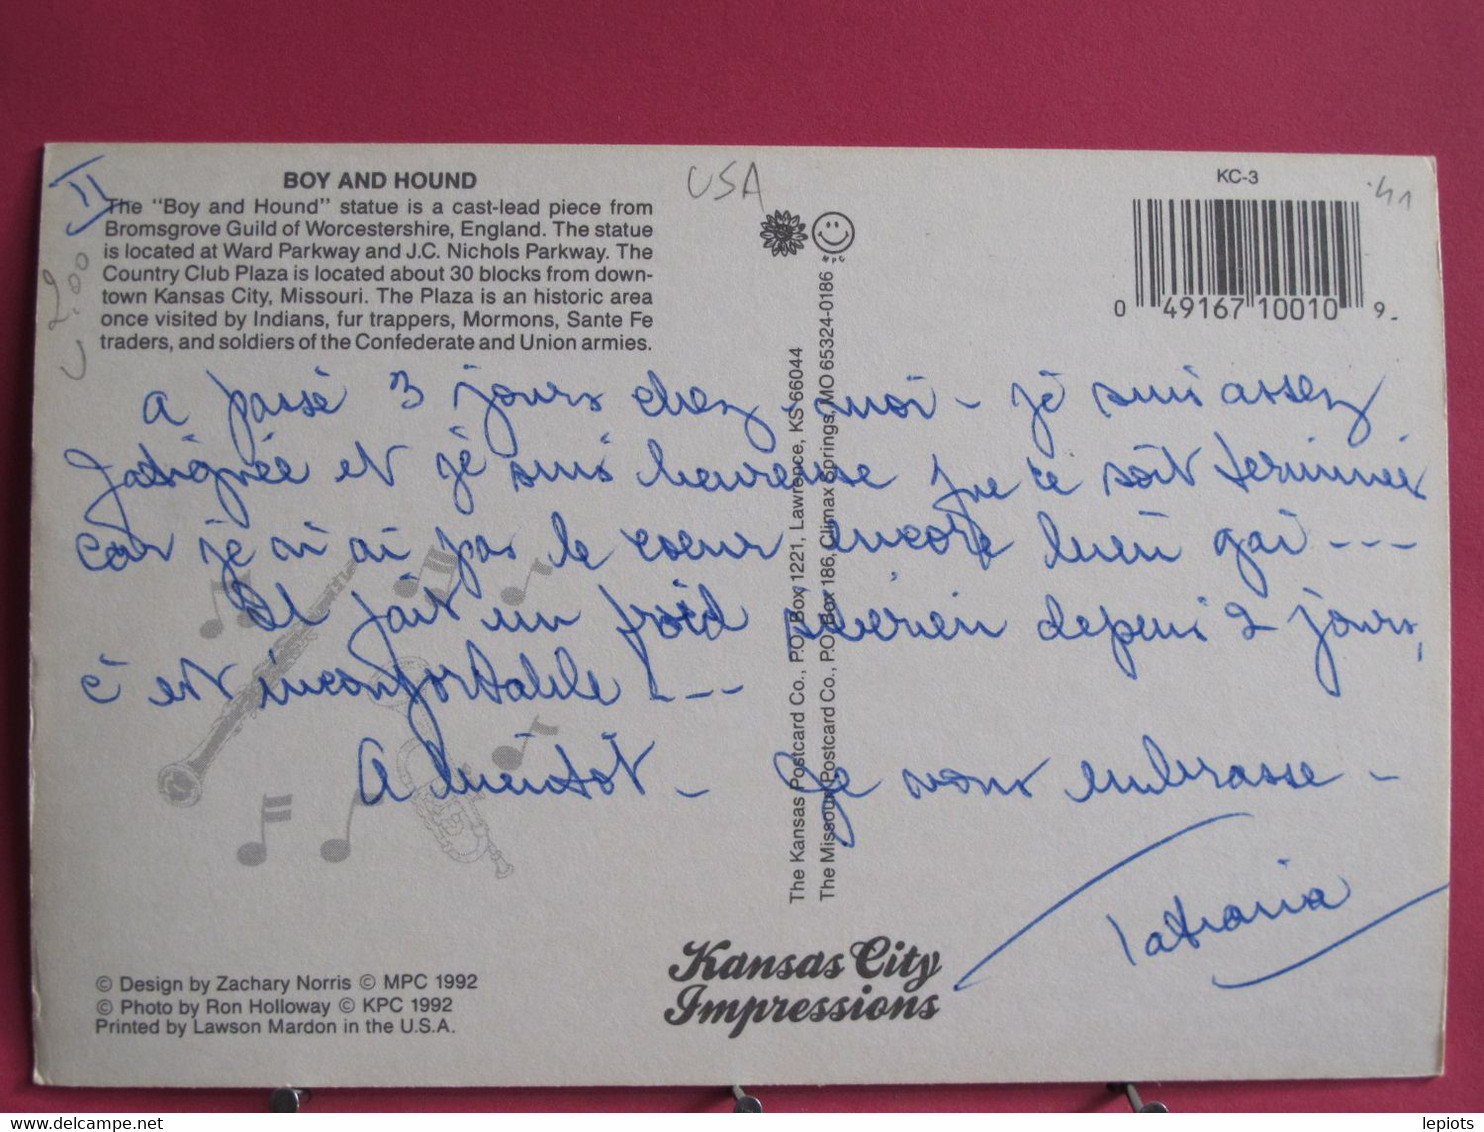 II
BOY AND HOUND
The "Boy and Hound" statue is a cast-lead piece from
Bromsgrove Guild of Worcestershire, England. The statue
is located at Ward Parkway and J.C. Nichols Parkway. The
Country Club Plaza is located about 30 blocks from down-
town Kansas City, Missouri. The Plaza is an historic area
once visited by Indians, fur trappers, Mormons, Sante Fe
traders, and soldiers of the Confederate and Union armies.
USA
2,00
KC-3
0 49167 10010 9
MPC
a passé 3 jours chez moi - je suis assez
fatiguée et je suis heureuse que ce soit terminée
car je n'ai pas le coeur encore bien gai ---
Il fait un froid sibérien depuis 2 jours,
c'est inconfortable ! ---
A bientôt - Je vous embrasse -
The Kansas Postcard Co., P.O. Box 1221, Lawrence, KS 66044
The Missouri Postcard Co., P.O. Box 186, Climax Springs, MO 65324-0186
© Design by Zachary Norris © MPC 1992
© Photo by Ron Holloway © KPC 1992
Printed by Lawson Mardon in the U.S.A.
Kansas City
Impressions
lepiots